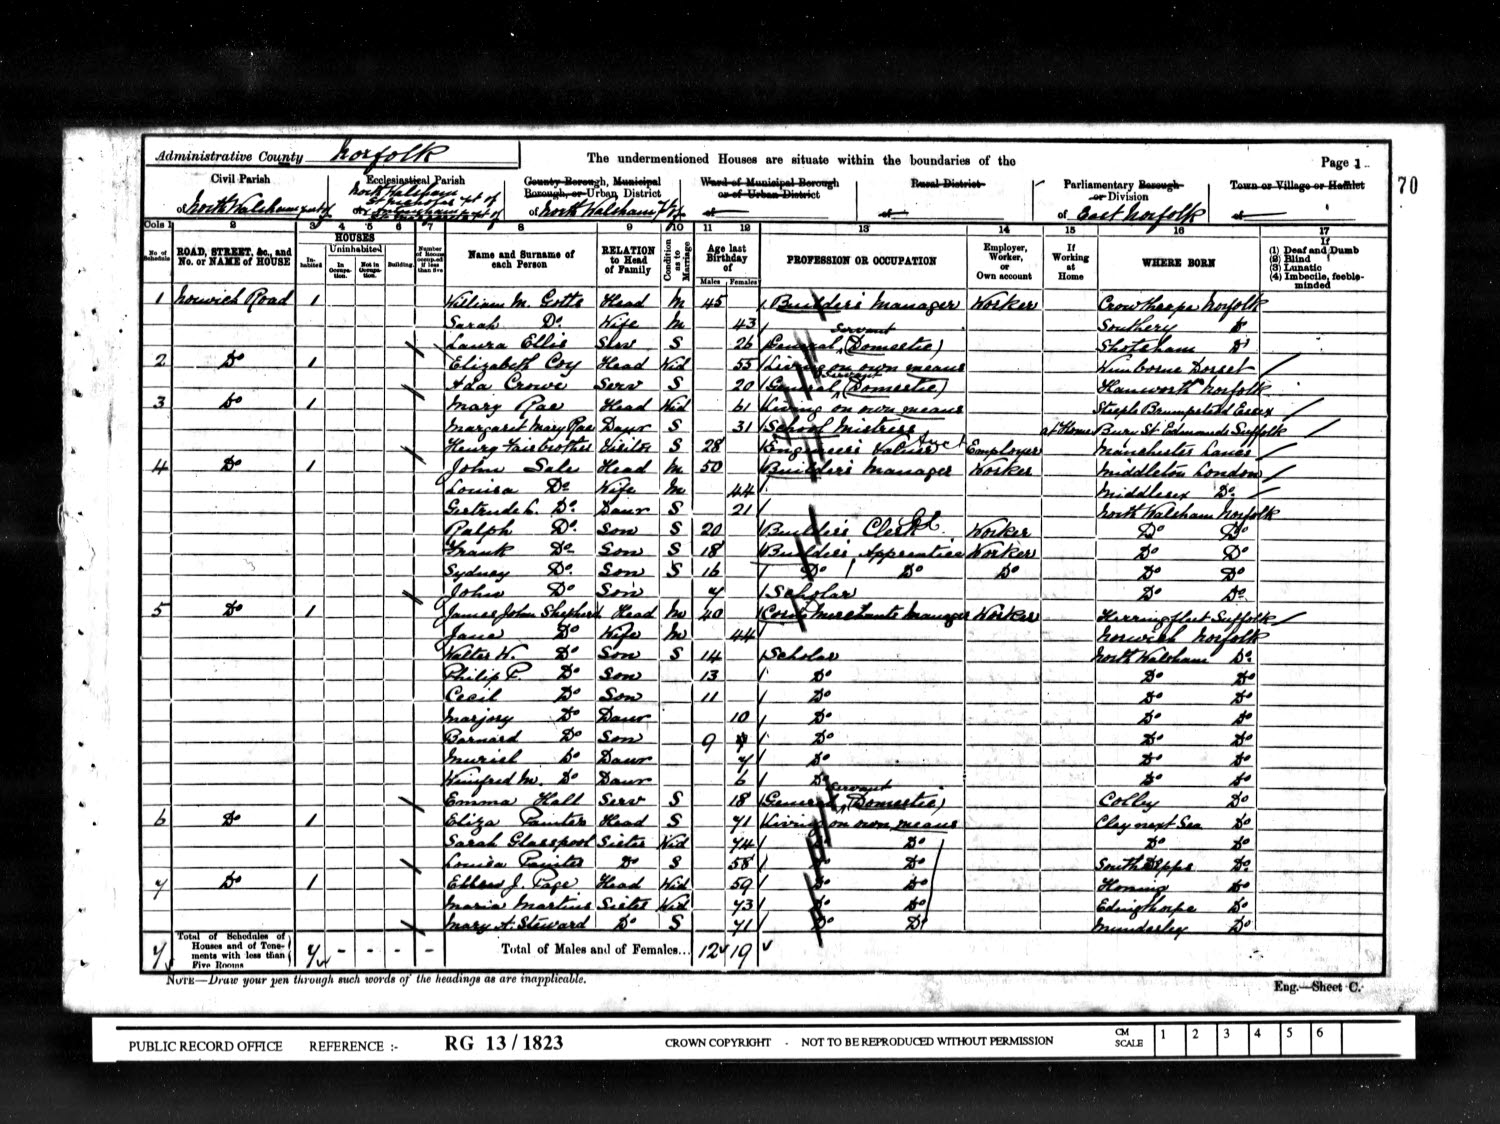 Administrative County Norfolk
The undermentioned Houses are situate within the boundaries of the
Page 1
70
Civil Parish
of North Walsham part of
Ecclesiastical Parish
North Walsham
St Nicholas pt of
County Borough, Municipal
Borough, or Urban District
of North Walsham Pt of
Ward of Municipal Borough
or of Urban District
of
Rural District
of
Parliamentary Borough
or Division
of East Norfolk
Town or Village or Hamlet
of
Cols 1 2 3 4 5 6 7 8 9 10 11 12 13 14 15 16 17
No. of Schedule
ROAD, STREET, &c., and No. or NAME of HOUSE
HOUSES
Inhabited
Uninhabited
In Occupation.
Not in Occupation.
Building.
Number of Rooms occupied if less than five
Name and Surname of each Person
RELATION to Head of Family
Condition as to Marriage
Age last Birthday of
Males Females
PROFESSION OR OCCUPATION
Employer, Worker, or Own account
If Working at Home
WHERE BORN
If
(1) Deaf and Dumb
(2) Blind
(3) Lunatic
(4) Imbecile, feeble-minded
1 Norwich Road 1 William M. Gotts Head M 45 Builder's Manager Worker Crowthorpe Norfolk
Sarah Do Wife M 43 Southery Do
Laura Ellis Serv S 26 General Servant (Domestic) Shotesham Do
2 Do 1 Elizabeth Coy Head Wid 55 Living on own means Wimborne Dorset
Ada Crowe Serv S 20 General Servant (Domestic) Hanworth Norfolk
3 Do 1 Mary Rae Head Wid 61 Living on own means Steeple Bumpstead Essex
Margaret Mary Rae Daur S 31 School Mistress at Home Bury St Edmunds Suffolk
Henry Fairbrother Visitor S 28 Engineer's Valuer Employer Manchester Lancs
4 Do 1 John Sale Head M 50 Builder's Manager Worker Middleton London
Louisa Do Wife M 44 Middlesex Do
Gertrude L. Do Daur S 21 North Walsham Norfolk
Ralph Do Son S 20 Builder's Clerk Worker Do Do
Frank Do Son S 18 Builder's Apprentice Worker Do Do
Sydney Do Son S 16 Do Do Do Do Do
John Do Son 7 Scholar Do Do
5 Do 1 James John Shepherd Head M 40 Corn Merchants Manager Worker Herringfleet Suffolk
Jane Do Wife M 44 Norwich Norfolk
Walter W. Do Son S 14 Scholar North Walsham Do
Philip P. Do Son 13 Do Do Do
Cecil Do Son 11 Do Do Do
Marjory Do Daur 10 Do Do Do
Barnard Do Son 9 Do Do Do
Muriel Do Daur 7 Do Do Do
Winifred M. Do Daur 6 Do Do Do
Emma Hall Serv S 18 General Servant (Domestic) Colby Do
6 Do 1 Eliza Painter Head S 71 Living on own means Clay next Sea Do
Sarah Glasspool Sister Wid 74 Do Do Do Do
Louisa Painter Do S 58 Do Do South Repps Do
7 Do 1 Ellen J. Page Head Wid 59 Do Do Honing Do
Maria Martins Sister Wid 73 Do Do Edingthorpe Do
Mary A. Steward Do S 71 Do Do Mundesley Do
7 Total of Schedules of Houses and of Tenements with less than Five Rooms 7 - - - - Total of Males and of Females... 12 19
NOTE—Draw your pen through such words of the headings as are inapplicable.
Eng.—Sheet C.
PUBLIC RECORD OFFICE REFERENCE :- RG 13/1823 CROWN COPYRIGHT - NOT TO BE REPRODUCED WITHOUT PERMISSION CM SCALE 1 2 3 4 5 6